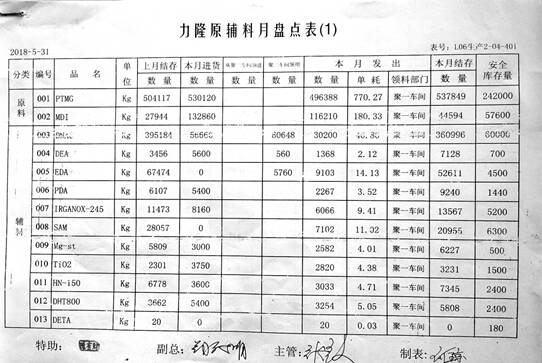 力隆原辅料月盘点表(1)
2018-5-31 表号: L06生产2-04-401
分类 编号 品 名 单位 上月结存 本月进货 本 月 发 出 本月结存 安全库存量
数 量 数 量 数 量 数 量 数 量 单 耗 领料部门 数 量
原料 001 PTMG Kg 504117 530120 496388 770.27 聚一车间 537849 242000
002 MDI Kg 27944 132860 116210 180.33 聚一车间 44594 57600
辅料 003 DMAC Kg 395184 56660 60648 30200 46.86 聚一车间 360996 80000
004 DEA Kg 3456 5600 560 1368 2.12 聚一车间 7128 700
005 EDA Kg 67474 0 5760 9103 14.13 聚一车间 52611 4500
006 PDA Kg 6107 5400 2267 3.52 聚一车间 9240 1440
007 IRGANOX-245 Kg 11473 8160 6066 9.41 聚一车间 13567 5200
008 SAM Kg 28057 0 7102 11.02 聚一车间 20955 6300
009 Mg-st Kg 5809 3000 2582 4.01 聚一车间 6227 500
010 TiO2 Kg 2301 3750 2820 4.38 聚一车间 3231 1500
011 HN-i50 Kg 6778 3600 3033 4.71 聚一车间 7345 2400
012 DHT800 Kg 3662 5400 3254 5.05 聚一车间 5808 2400
013 DETA Kg 20 0 20 0.03 聚一车间 0 180
特助: 副总: 主管: 制表: